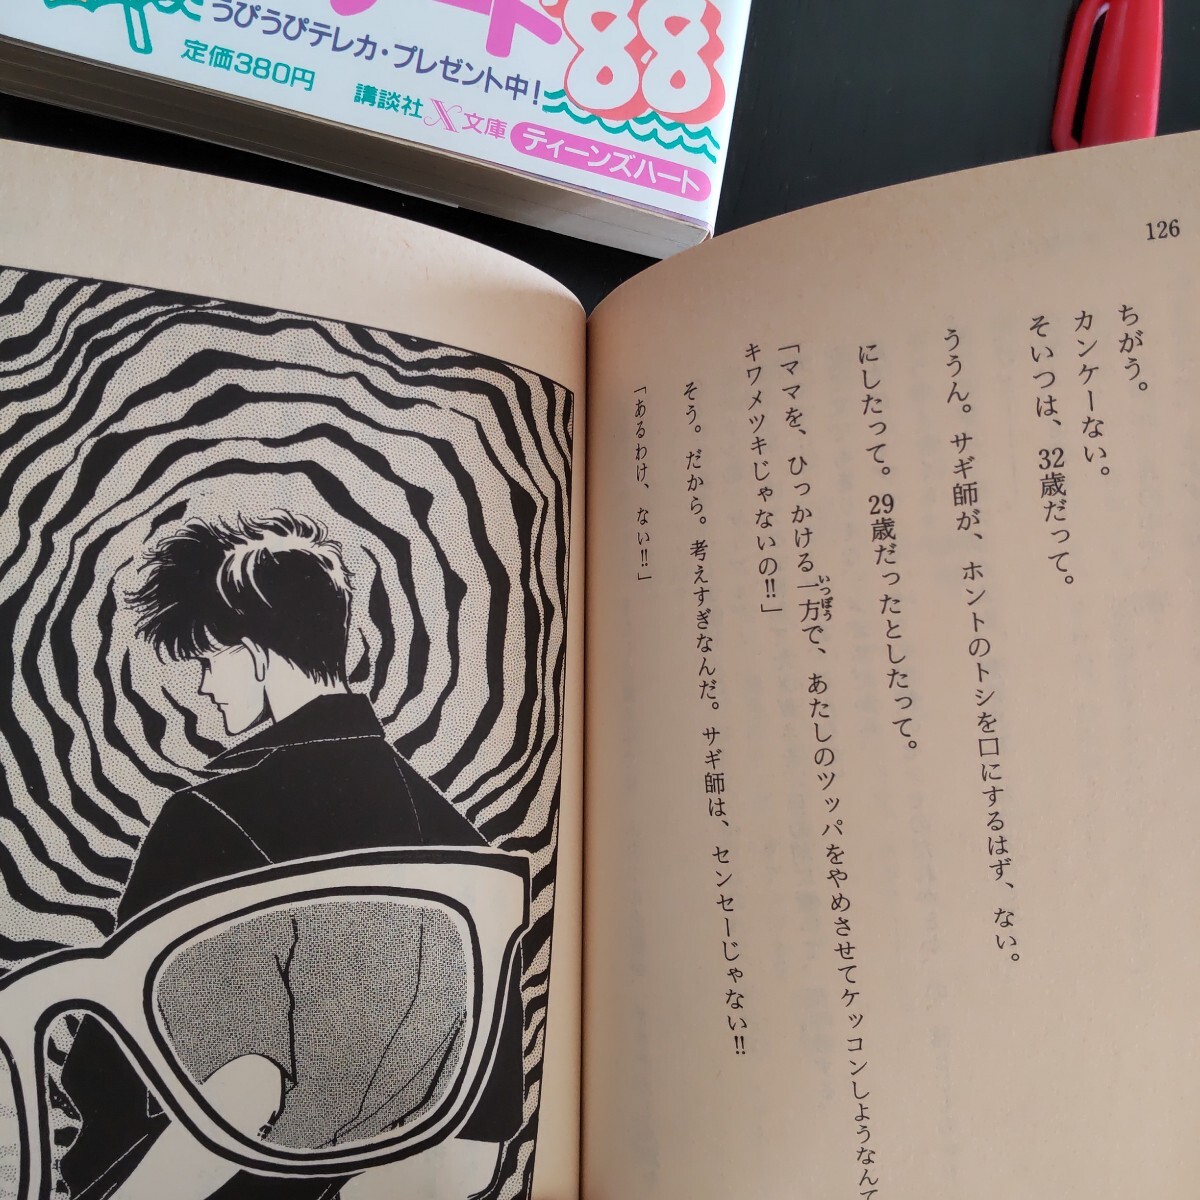 うぴうぴテレカ・プレゼント中!
'88
定価380円
講談社X文庫
ティーンズハート
126
ちがう。
カンケーない。
そいつは、32歳だって。
ううん。サギ師が、ホントのトシを口にするはず、ない。
にしたって。29歳だったとしたって。
「ママを、ひっかける一方で、あたしのツッパをやめさせてケッコンしようなんて
いっぽう
キワメツキじゃないの!!」
そう。だから。考えすぎなんだ。サギ師は、センセーじゃない!!
「あるわけ、ない!!」